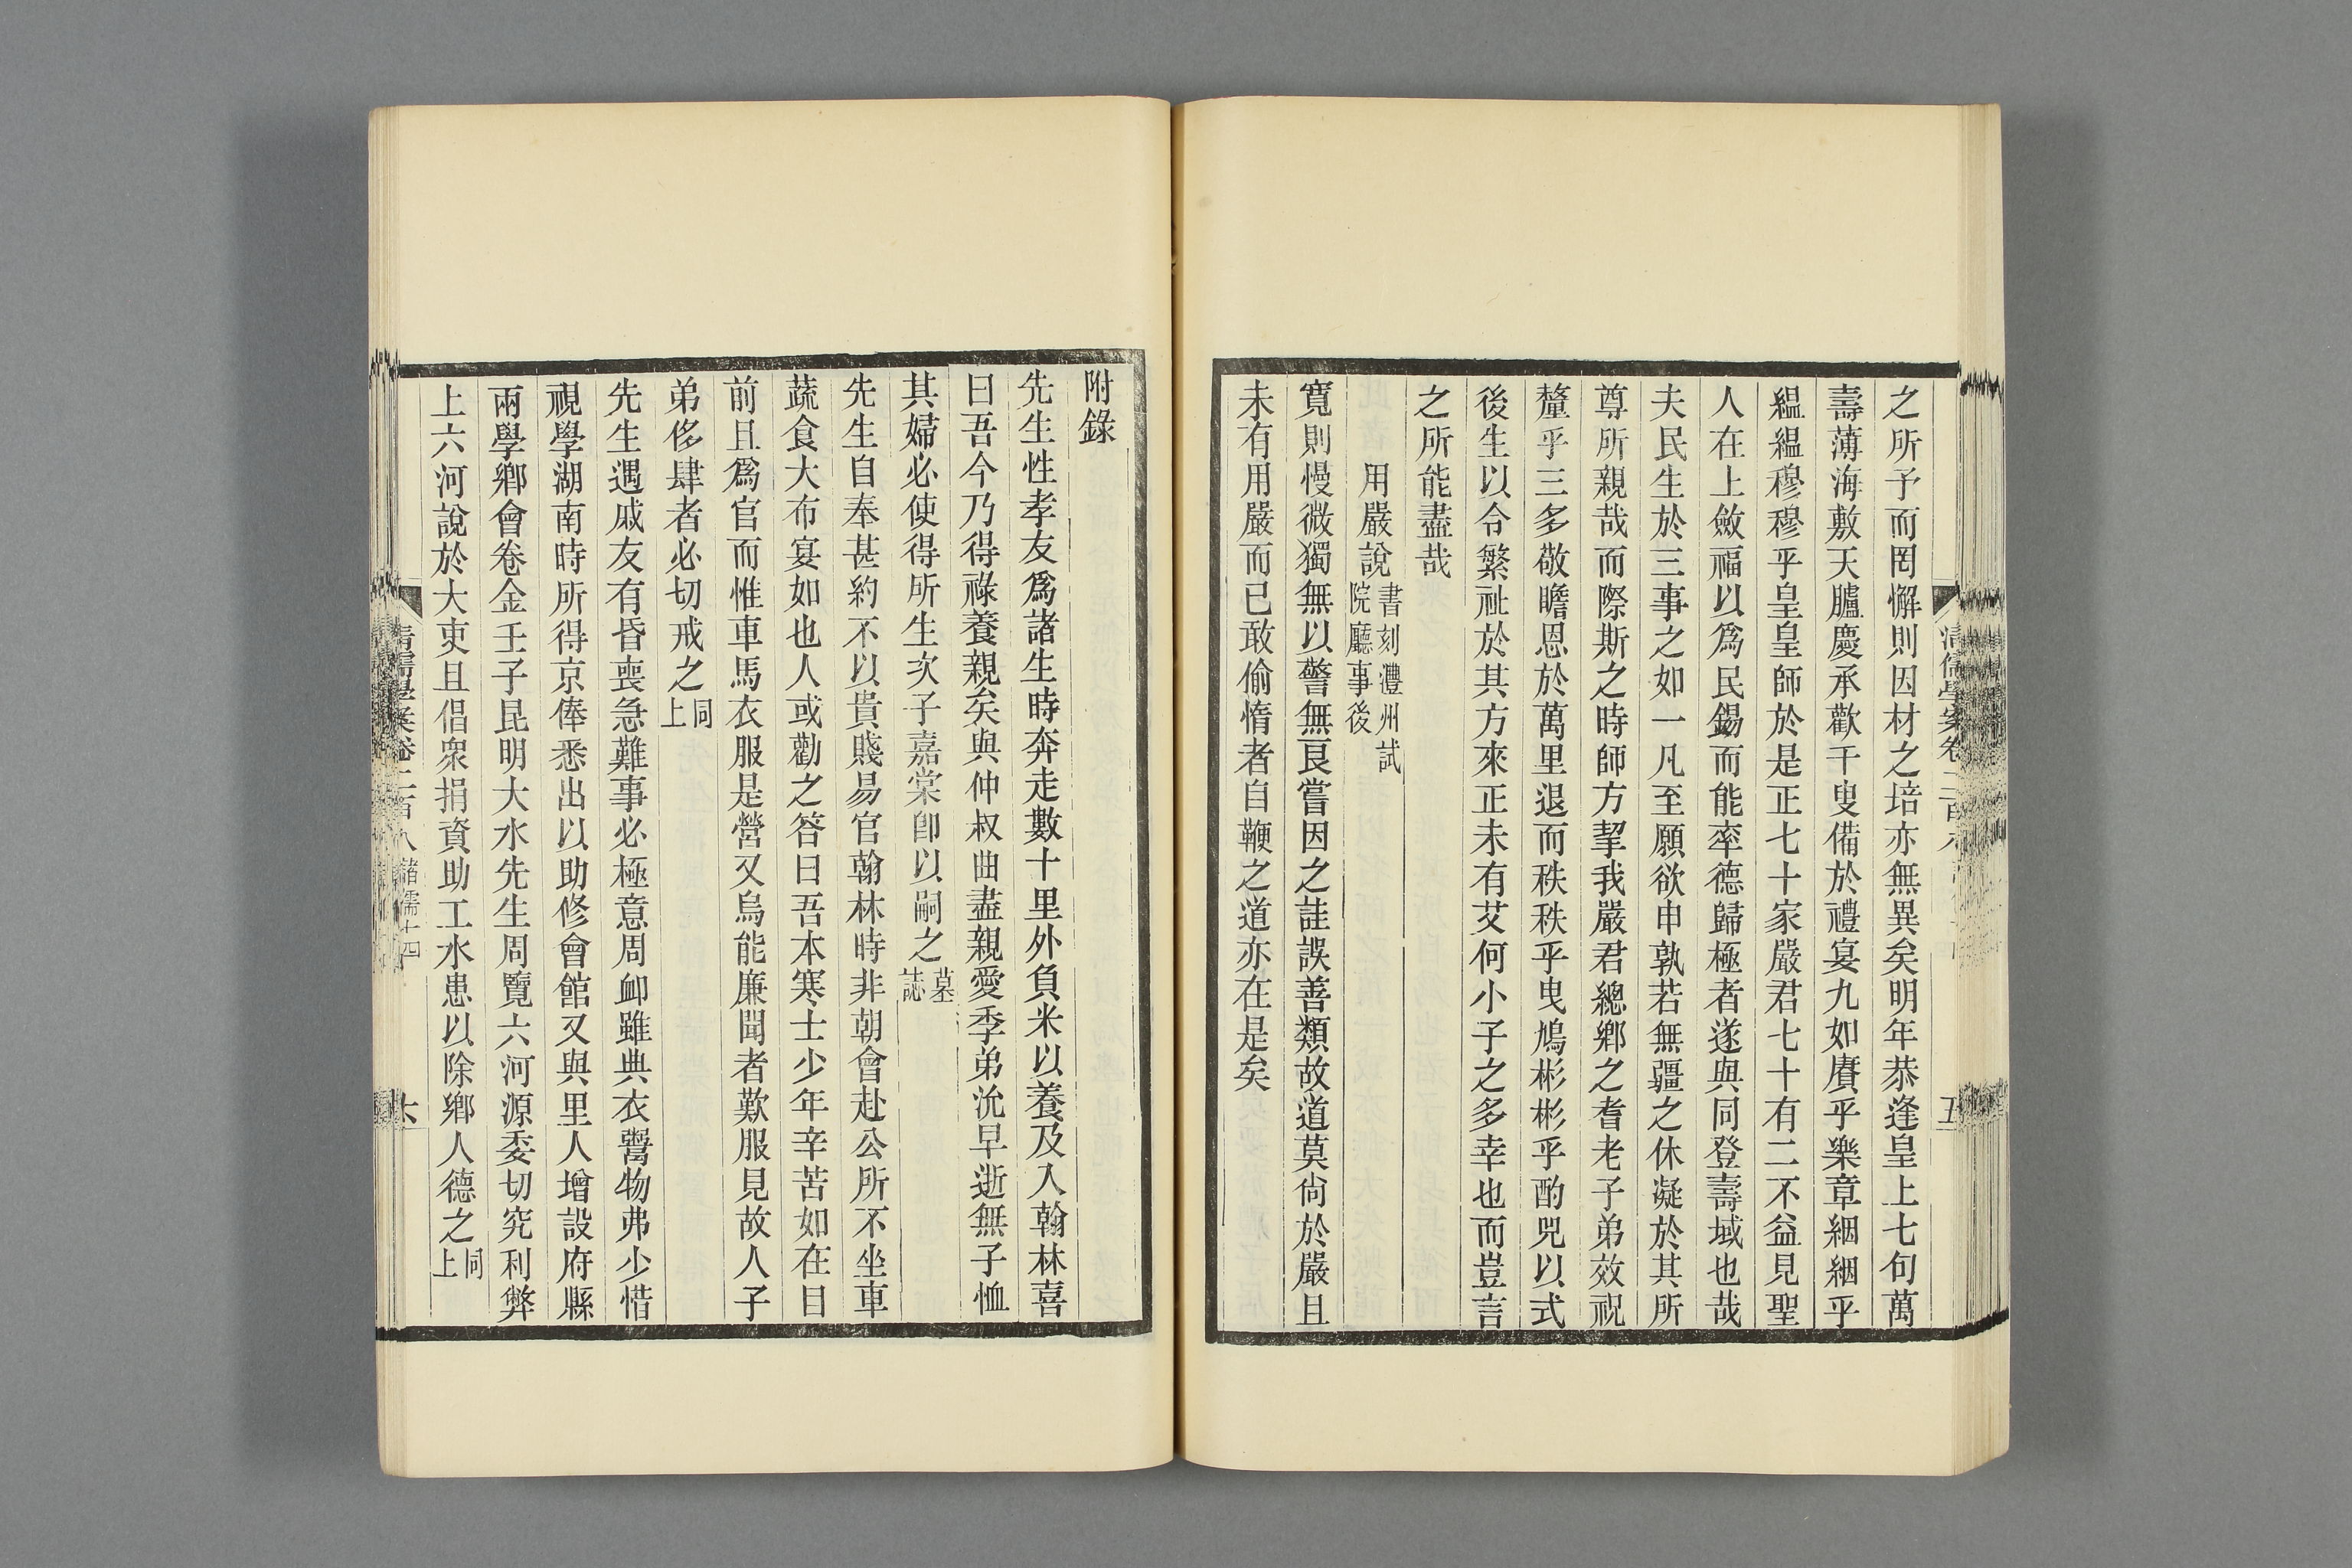 之所予而罔懈則因材之培亦無異矣明年恭逢皇上七旬萬
壽薄海敷天臚慶承歡千叟備於禮宴九如賡乎樂章絪絪乎
縕縕穆穆乎皇皇師於是正七十家嚴君七十有二不益見聖
人在上斂福以爲民錫而能率德歸極者遂與同登壽域也哉
夫民生於三事之如一凡至願欲申孰若無疆之休凝於其所
尊所親哉而際斯之時師方挈我嚴君總鄉之耆老子弟效祝
釐乎三多敬瞻恩於萬里退而秩秩乎曳鳩彬彬乎酌兕以式
後生以令繁祉於其方來正未有艾何小子之多幸也而豈言
之所能盡哉
用嚴說書刻灃州試院廳事後
寬則慢微獨無以警無良嘗因之詿誤善類故道莫尙於嚴且
未有用嚴而已敢偷惰者自鞭之道亦在是矣
附錄
先生性孝友爲諸生時奔走數十里外負米以養及入翰林喜
曰吾今乃得祿養親矣與仲叔曲盡親愛季弟沇早逝無子恤
其婦必使得所生次子嘉棠卽以嗣之墓誌
先生自奉甚約不以貴賤易官翰林時非朝會赴公所不坐車
蔬食大布宴如也人或勸之答曰吾本寒士少年辛苦如在目
前且爲官而惟車馬衣服是營又烏能廉聞者歎服見故人子
弟侈肆者必切戒之同上
先生遇戚友有昏喪急難事必極意周卹雖典衣鬻物弗少惜
視學湖南時所得京俸悉出以助修會館又與里人增設府縣
兩學鄉會卷金壬子昆明大水先生周覽六河源委切究利弊
上六河說於大吏且倡衆捐資助工水患以除鄉人德之同上
清儒學案卷二百八 諸儒十四 六